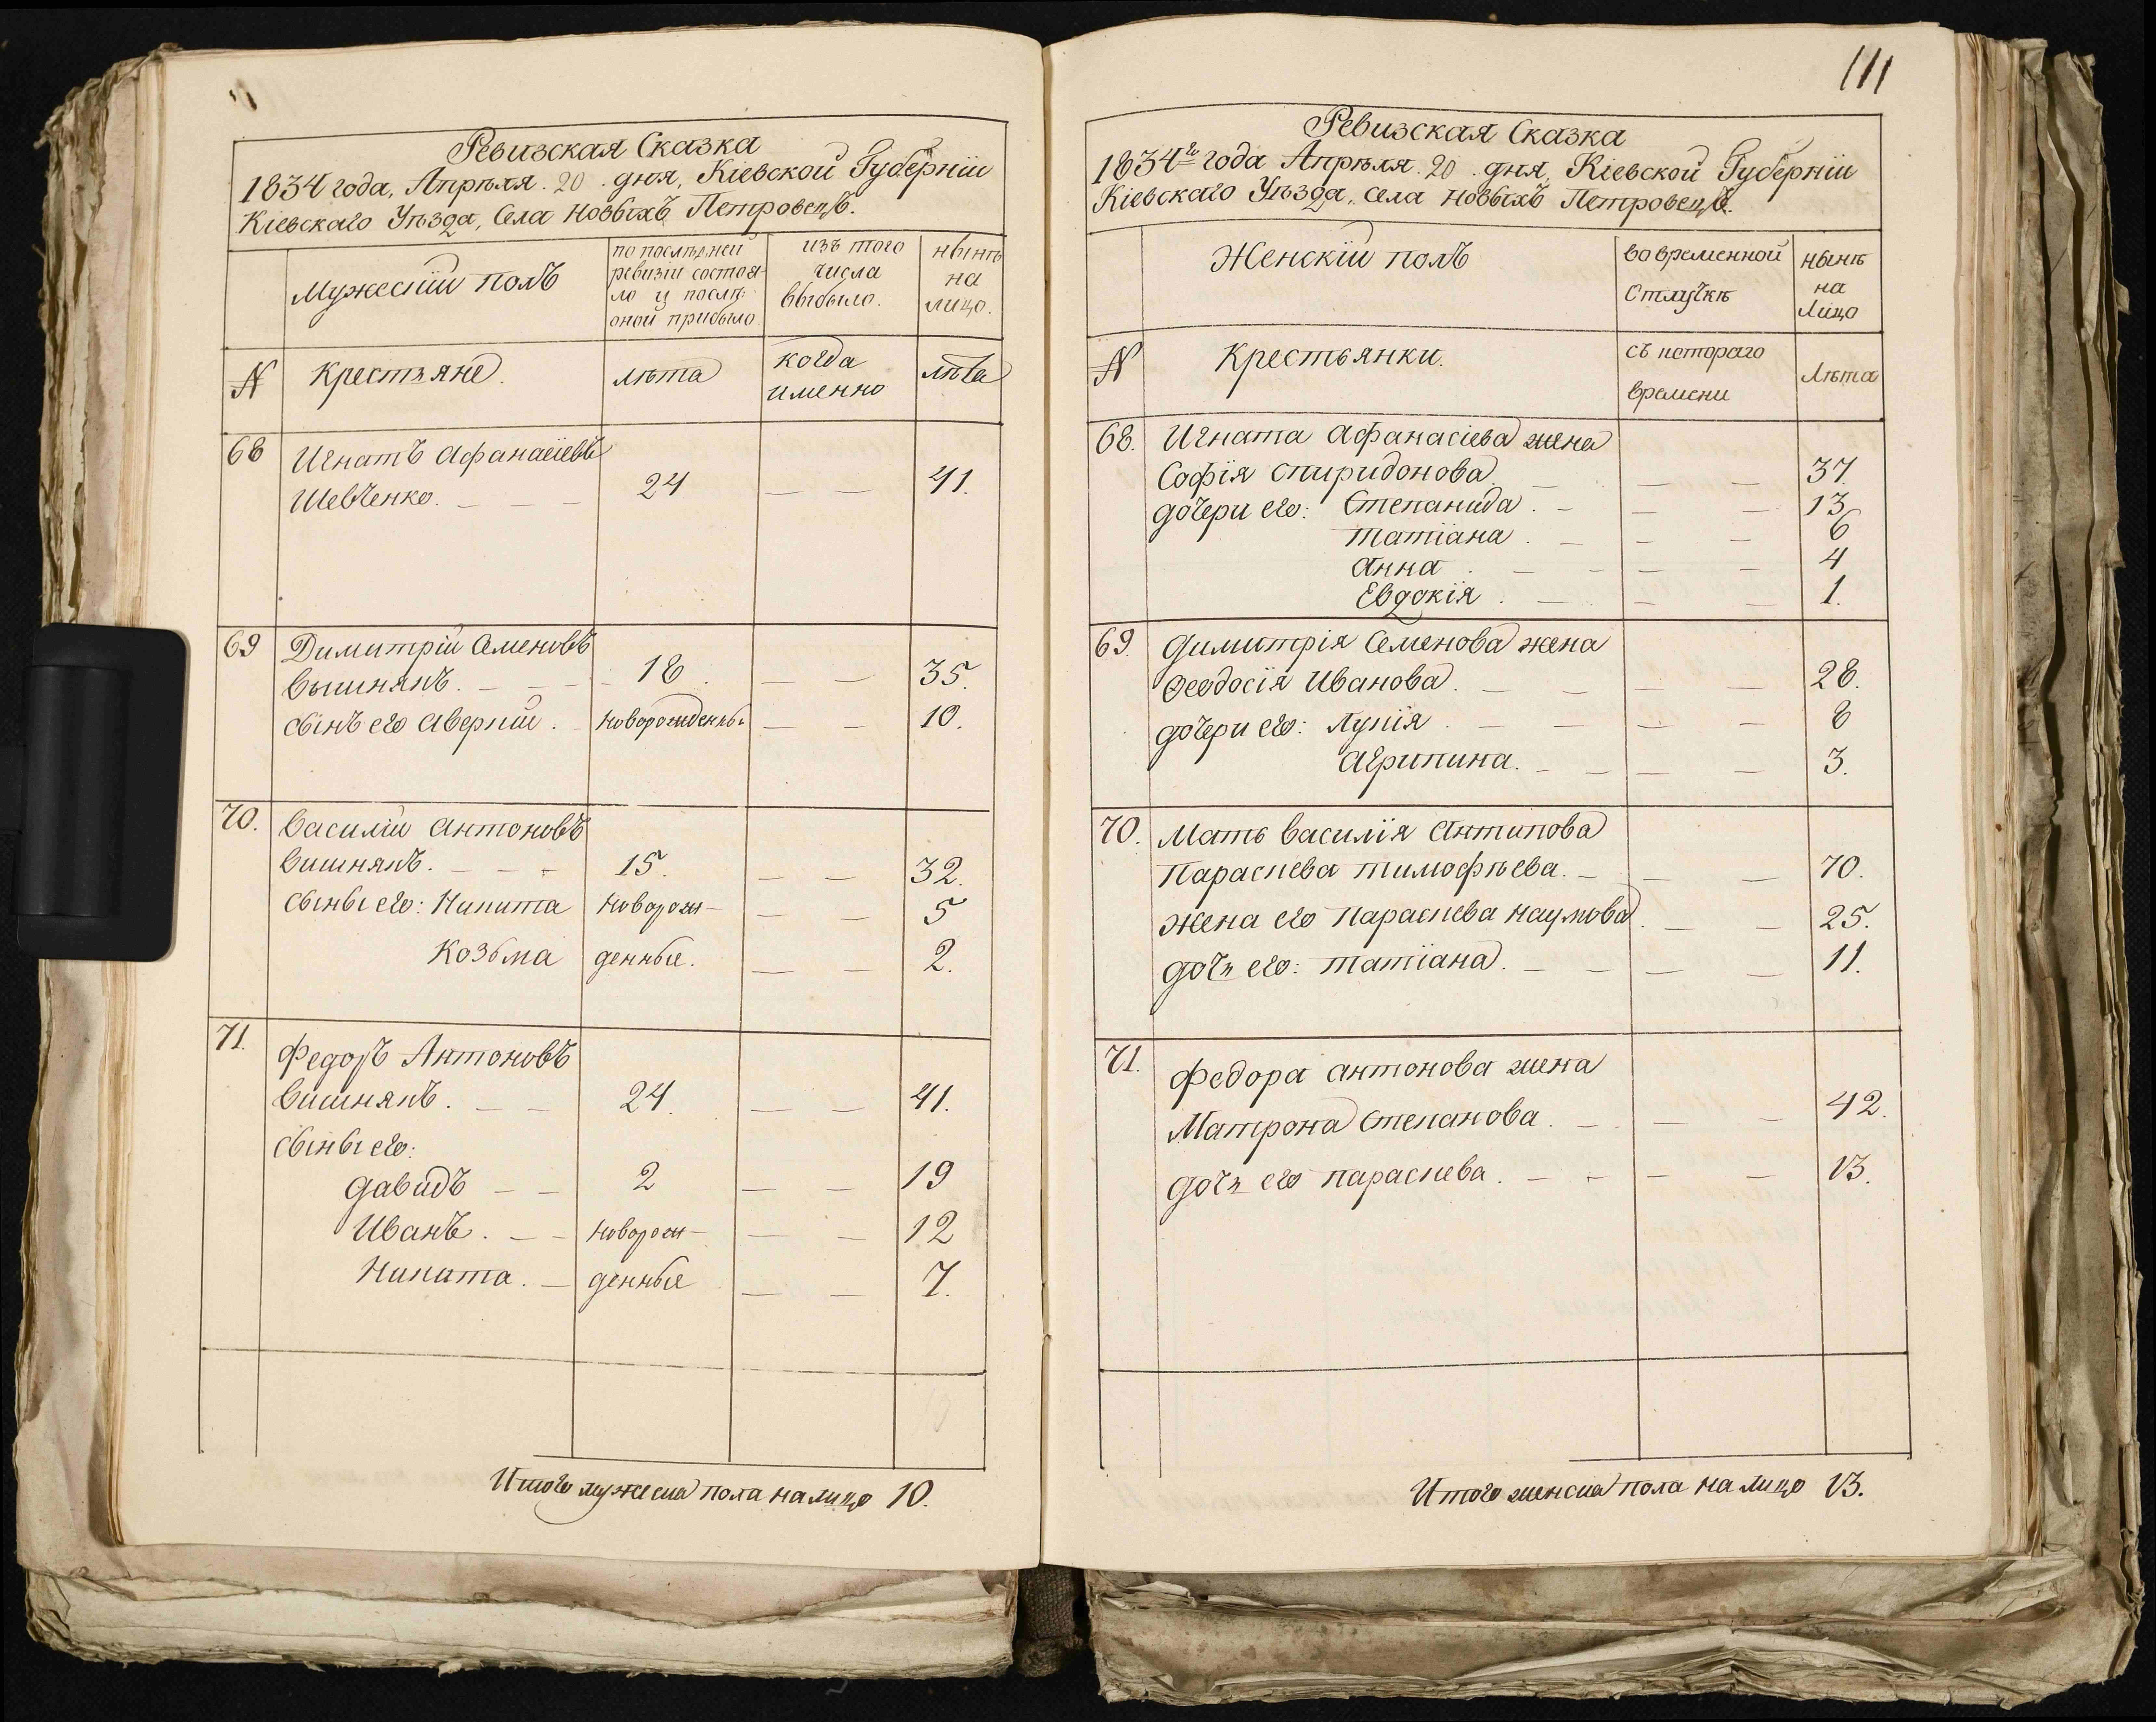 Ревизская Сказка
1834 года, Апрѣля. 20. дня, Кіевской Губерніи
Кіевскаго Уѣзда, Села Новыхъ Петровецъ.
Мужескій полъ
по послѣдней
ревизіи состоя-
ло и послѣ
оной прибыло.
изъ того
числа
выбыло.
нынѣ
на
лицо.
№
Крестьяне
лѣта
когда
именно
лѣта
68
Игнатъ Афанасіевъ
Шевченко. 24 — — 41.
69
Димитрій Семеновъ
Вышнякъ. 18. — — 35.
сынъ его Аверкій. новорожденны — — 10.
70.
Василій Антоновъ
Вишнякъ. 15. — — 32.
сыны его: Никита новорож- — — 5
Козьма денные. — — 2.
71.
Федоръ Антоновъ
Вишнякъ. 24. — — 41.
сыны его:
Давидъ 2 — — 19
Иванъ. новорож- — — 12
Никита. денные — — 7.
Итого мужеска пола на лицо 10.
111
Ревизская Сказка
1834го года Апрѣля. 20. дня, Кіевской Губерніи
Кіевскаго Уѣзда, Села Новыхъ Петровецъ.
Женскій полъ
во временной
отлучкѣ
нынѣ
на
Лицо
№
Крестьянки.
съ котораго
времени
Лѣта
68.
Игната Афанасіева жена
Софія Спиридонова — — 37.
дочери его: Степанида. — — 13
Татіана. — — 6
Анна. — — 4
Евдокія. — — 1.
69.
Димитрія Семенова жена
Феодосія Иванова. — — 28.
дочери его: Лукія. — — 8
Агрипина. — — 3.
70.
Мать Василія Антипова
Параскева Тимофѣева. — — 70.
жена его Параскева Наумова. — — 25.
дочь его: Татіана. — — 11.
71.
Федора Антонова жена
Матрона Степанова. — — 42.
дочь его Параскева. — — 13.
Итого женска пола на лицо 13.